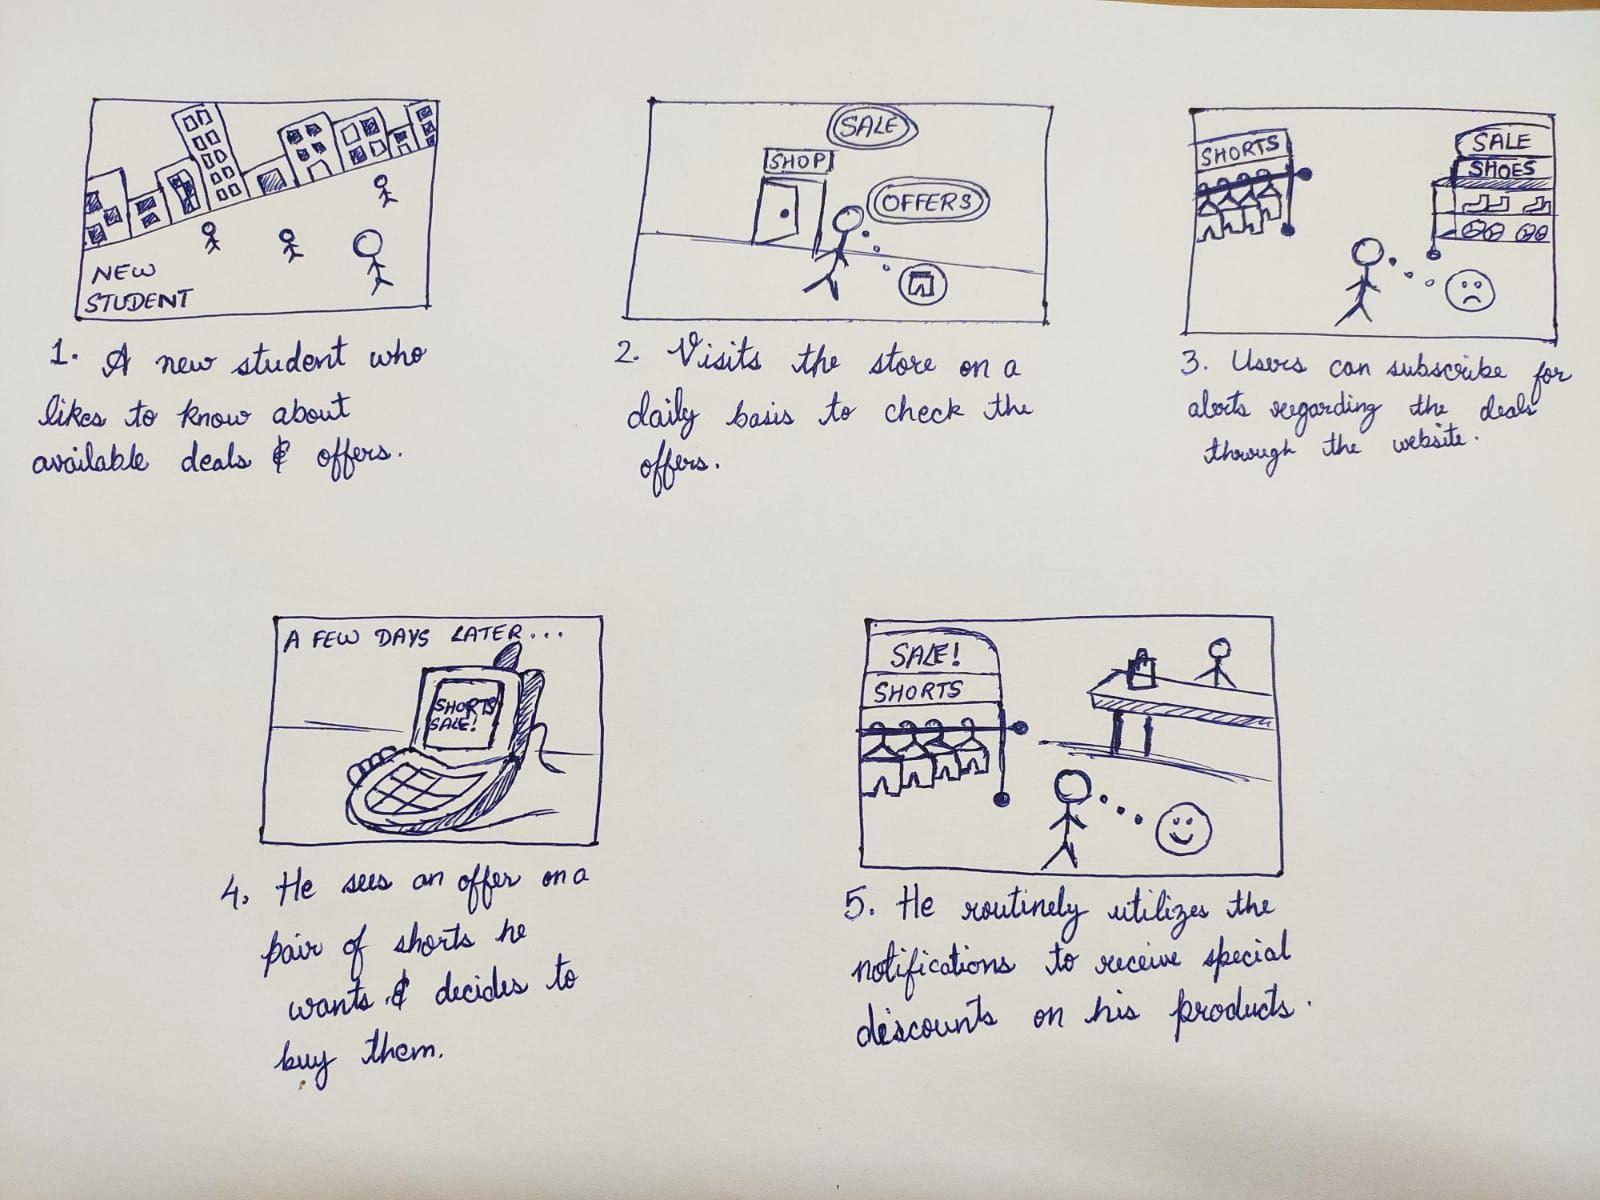 NEW
STUDENT
1. A new student who
likes to know about
available deals & offers.
SALE
SHOP
OFFERS
2. Visits the store on a
daily basis to check the
offers.
SHORTS
SALE
SHOES
3. Users can subscribe for
alerts regarding the deals
through the website.
A FEW DAYS LATER...
SHORTS
SALE!
4. He sees an offer on a
pair of shorts he
wants & decides to
buy them.
SALE!
SHORTS
5. He routinely utilizes the
notifications to receive special
discounts on his products.